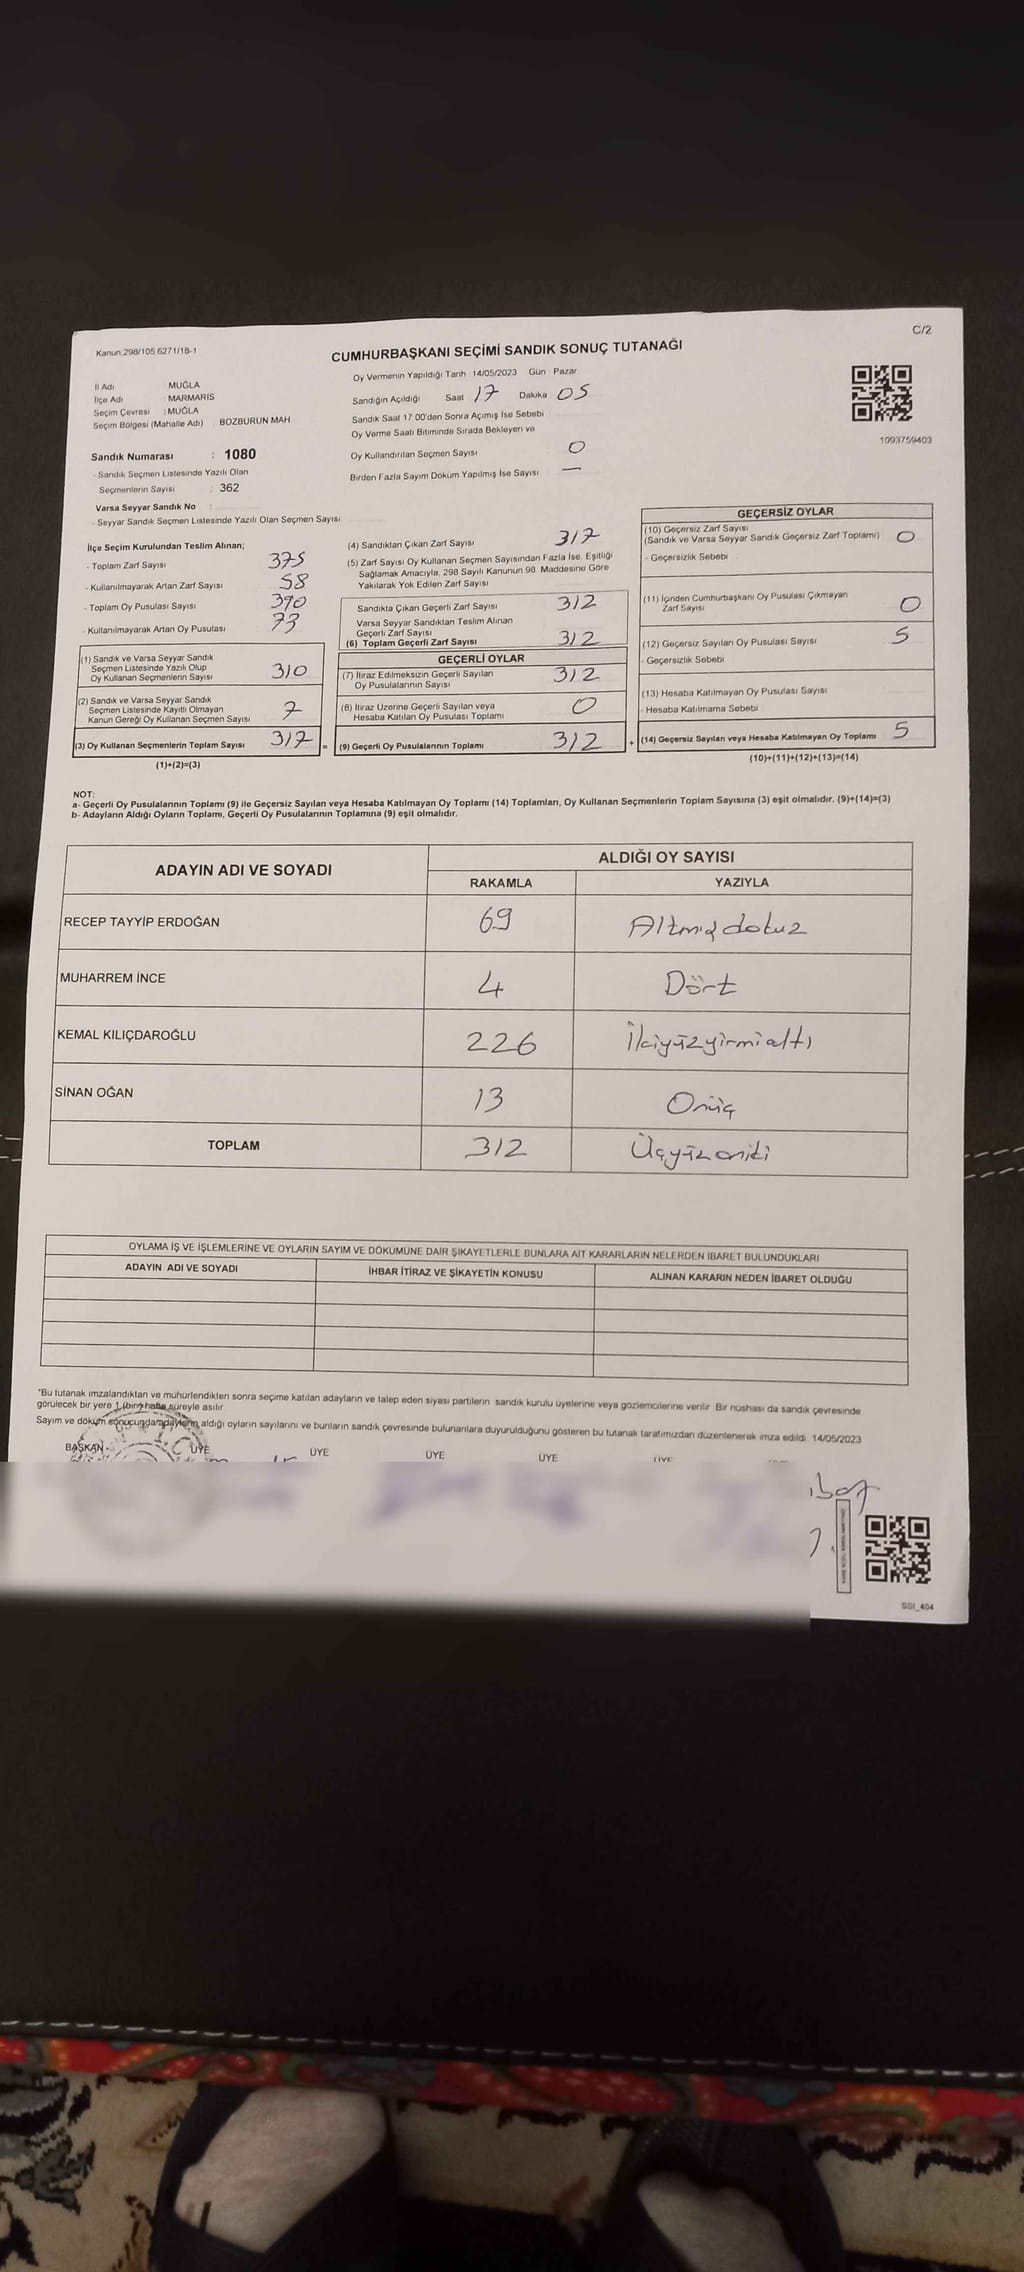 C/2
Kanun:298/105;6271/18-1
CUMHURBAŞKANI SEÇİMİ SANDIK SONUÇ TUTANAĞI
İl Adı MUĞLA
İlçe Adı MARMARİS
Seçim Çevresi : MUĞLA
Seçim Bölgesi (Mahalle Adı) BOZBURUN MAH
Sandık Numarası : 1080
- Sandık Seçmen Listesinde Yazılı Olan
Seçmenlerin Sayısı : 362
Varsa Seyyar Sandık No :
- Seyyar Sandık Seçmen Listesinde Yazılı Olan Seçmen Sayısı
Oy Vermenin Yapıldığı Tarih 14/05/2023 Gün Pazar
Sandığın Açıldığı Saat 17 Dakika 05
Sandık Saat 17.00'den Sonra Açımış İse Sebebi
Oy Verme Saati Bitiminde Sırada Bekleyen ve
Oy Kullandırılan Seçmen Sayısı 0
Birden Fazla Sayım Döküm Yapılmış İse Sayısı —
1093759403
İlçe Seçim Kurulundan Teslim Alınan;
- Toplam Zarf Sayısı 375
- Kullanılmayarak Artan Zarf Sayısı 58
- Toplam Oy Pusulası Sayısı 390
- Kullanılmayarak Artan Oy Pusulası 73
(1) Sandık ve Varsa Seyyar Sandık
Seçmen Listesinde Yazılı Olup
Oy Kullanan Seçmenlerin Sayısı 310
(2) Sandık ve Varsa Seyyar Sandık
Seçmen Listesinde Kayıtlı Olmayan
Kanun Gereği Oy Kullanan Seçmen Sayısı 7
(3) Oy Kullanan Seçmenlerin Toplam Sayısı 317 =
(1)+(2)=(3)
(4) Sandıktan Çıkan Zarf Sayısı 317
(5) Zarf Sayısı Oy Kullanan Seçmen Sayısından Fazla İse, Eşitliği
Sağlamak Amacıyla, 298 Sayılı Kanunun 98. Maddesine Göre
Yakılarak Yok Edilen Zarf Sayısı
Sandıkta Çıkan Geçerli Zarf Sayısı 312
Varsa Seyyar Sandıktan Teslim Alınan
Geçerli Zarf Sayısı
(6) Toplam Geçerli Zarf Sayısı 312
GEÇERLİ OYLAR
(7) İtiraz Edilmeksizin Geçerli Sayılan
Oy Pusulalarının Sayısı 312
(8) İtiraz Üzerine Geçerli Sayılan veya
Hesaba Katılan Oy Pusulası Toplamı 0
(9) Geçerli Oy Pusulalarının Toplamı 312 +
GEÇERSİZ OYLAR
(10) Geçersiz Zarf Sayısı
(Sandık ve Varsa Seyyar Sandık Geçersiz Zarf Toplamı) 0
- Geçersizlik Sebebi
(11) İçinden Cumhurbaşkanı Oy Pusulası Çıkmayan
Zarf Sayısı 0
(12) Geçersiz Sayılan Oy Pusulası Sayısı 5
- Geçersizlik Sebebi
(13) Hesaba Katılmayan Oy Pusulası Sayısı
- Hesaba Katılmama Sebebi
(14) Geçersiz Sayılan veya Hesaba Katılmayan Oy Toplamı 5
(10)+(11)+(12)+(13)=(14)
NOT:
a- Geçerli Oy Pusulalarının Toplamı (9) ile Geçersiz Sayılan veya Hesaba Katılmayan Oy Toplamı (14) Toplamları, Oy Kullanan Seçmenlerin Toplam Sayısına (3) eşit olmalıdır. (9)+(14)=(3)
b- Adayların Aldığı Oyların Toplamı, Geçerli Oy Pusulalarının Toplamına (9) eşit olmalıdır.
ADAYIN ADI VE SOYADI ALDIĞI OY SAYISI
RAKAMLA YAZIYLA
RECEP TAYYİP ERDOĞAN 69 Altmış dokuz
MUHARREM İNCE 4 Dört
KEMAL KILIÇDAROĞLU 226 İkiyüzyirmialtı
SİNAN OĞAN 13 Onüç
TOPLAM 312 Üçyüzoniki
OYLAMA İŞ VE İŞLEMLERİNE VE OYLARIN SAYIM VE DÖKÜMÜNE DAİR ŞİKAYETLERLE BUNLARA AİT KARARLARIN NELERDEN İBARET BULUNDUKLARI
ADAYIN ADI VE SOYADI İHBAR İTİRAZ VE ŞİKAYETİN KONUSU ALINAN KARARIN NEDEN İBARET OLDUĞU
*Bu tutanak imzalandıktan ve mühürlendikten sonra seçime katılan adayların ve talep eden siyasi partilerin sandık kurulu üyelerine veya gözlemcilerine verilir. Bir nüshası da sandık çevresinde
görülecek bir yere 1 (bir) hafta süreyle asılır.
Sayım ve döküm sonucunda adayların aldığı oyların sayılarını ve bunların sandık çevresinde bulunanlara duyurulduğunu gösteren bu tutanak tarafımızdan düzenlenerek imza edildi. 14/05/2023
BAŞKAN ÜYE ÜYE ÜYE ÜYE ÜYE
SSI_404